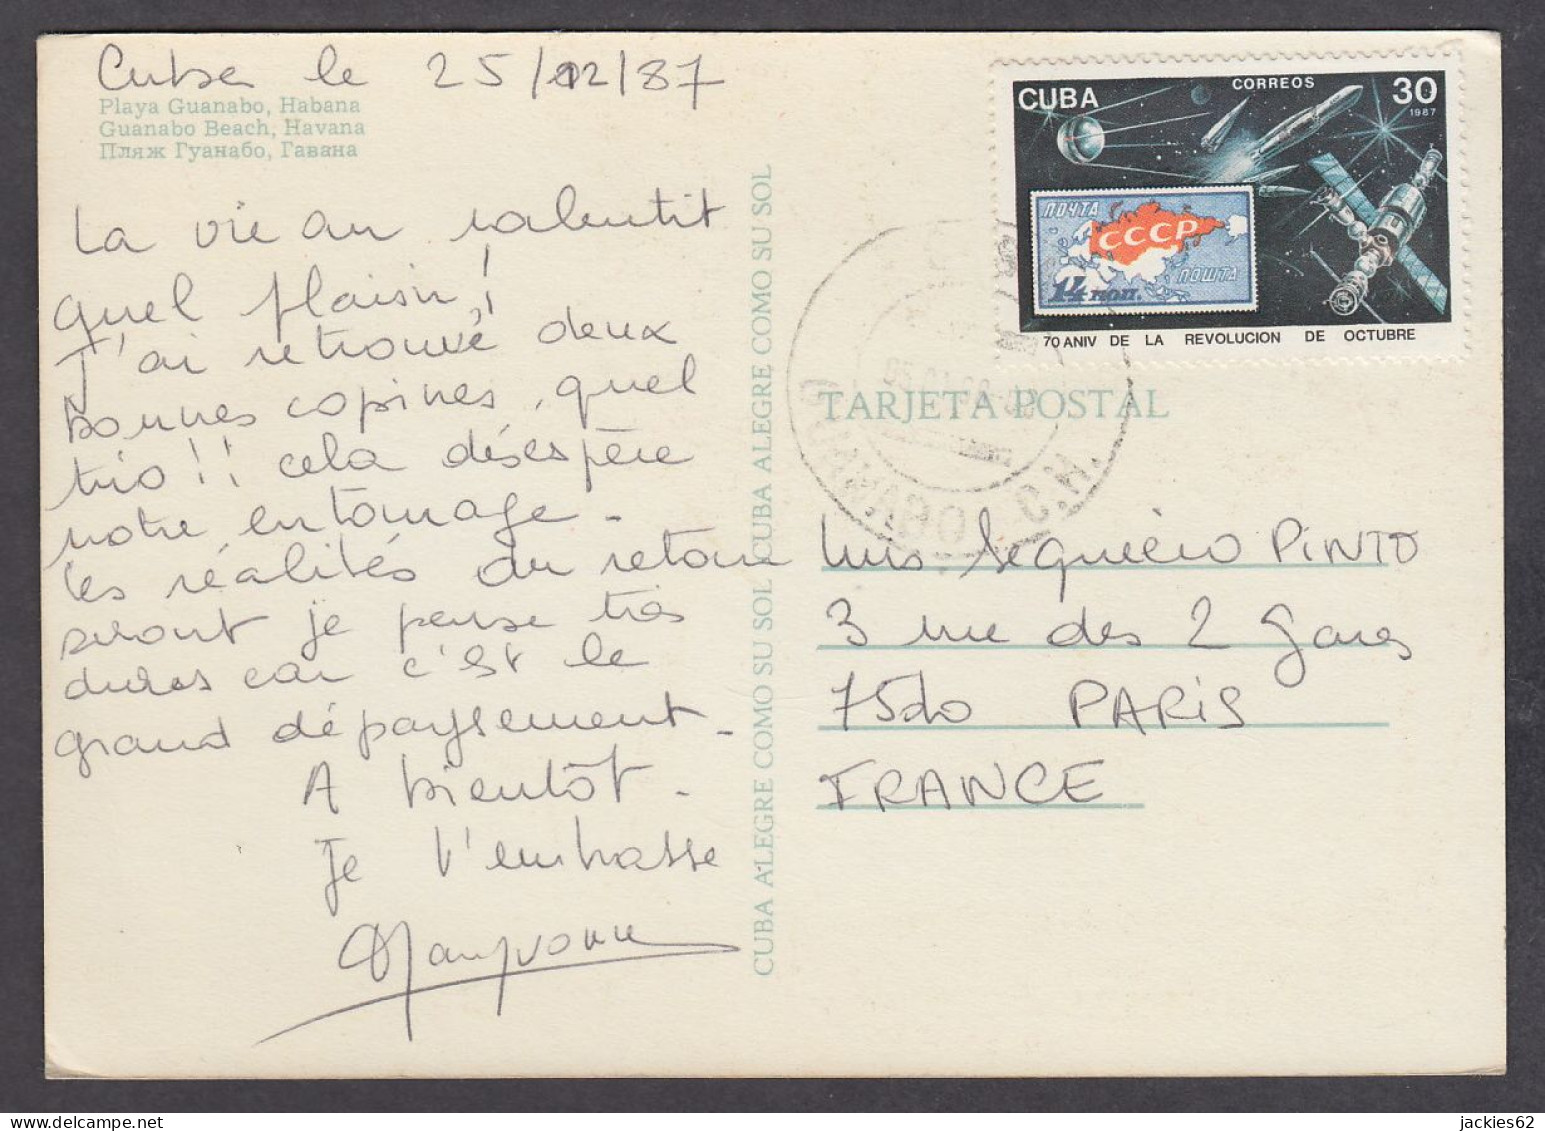 Cuba le 25/12/87
Playa Guanabo, Habana
Guanabo Beach, Havana
Пляж Гуанабо, Гавана
La vie au ralentit
quel plaisir!
J'ai retrouvé deux
bonnes copines, quel
trio!! cela désespère
notre entourage.
les réalités du retour
seront je pense très
dures car c'est le
grand dépaysement.
A bientôt.
Je t'embrasse
Maryvonne
CUBA ALEGRE COMO SU SOL CUBA ALEGRE COMO SU SOL
CUBA
CORREOS
30
1987
ПОЧТА
СССР
ПОШТА
14 коп.
70 ANIV DE LA REVOLUCION DE OCTUBRE
TARJETA POSTAL
GUANABO. C.H.
Luis Sequiero PINTO
3 rue des 2 Gares
75010 PARIS
FRANCE
jackies62